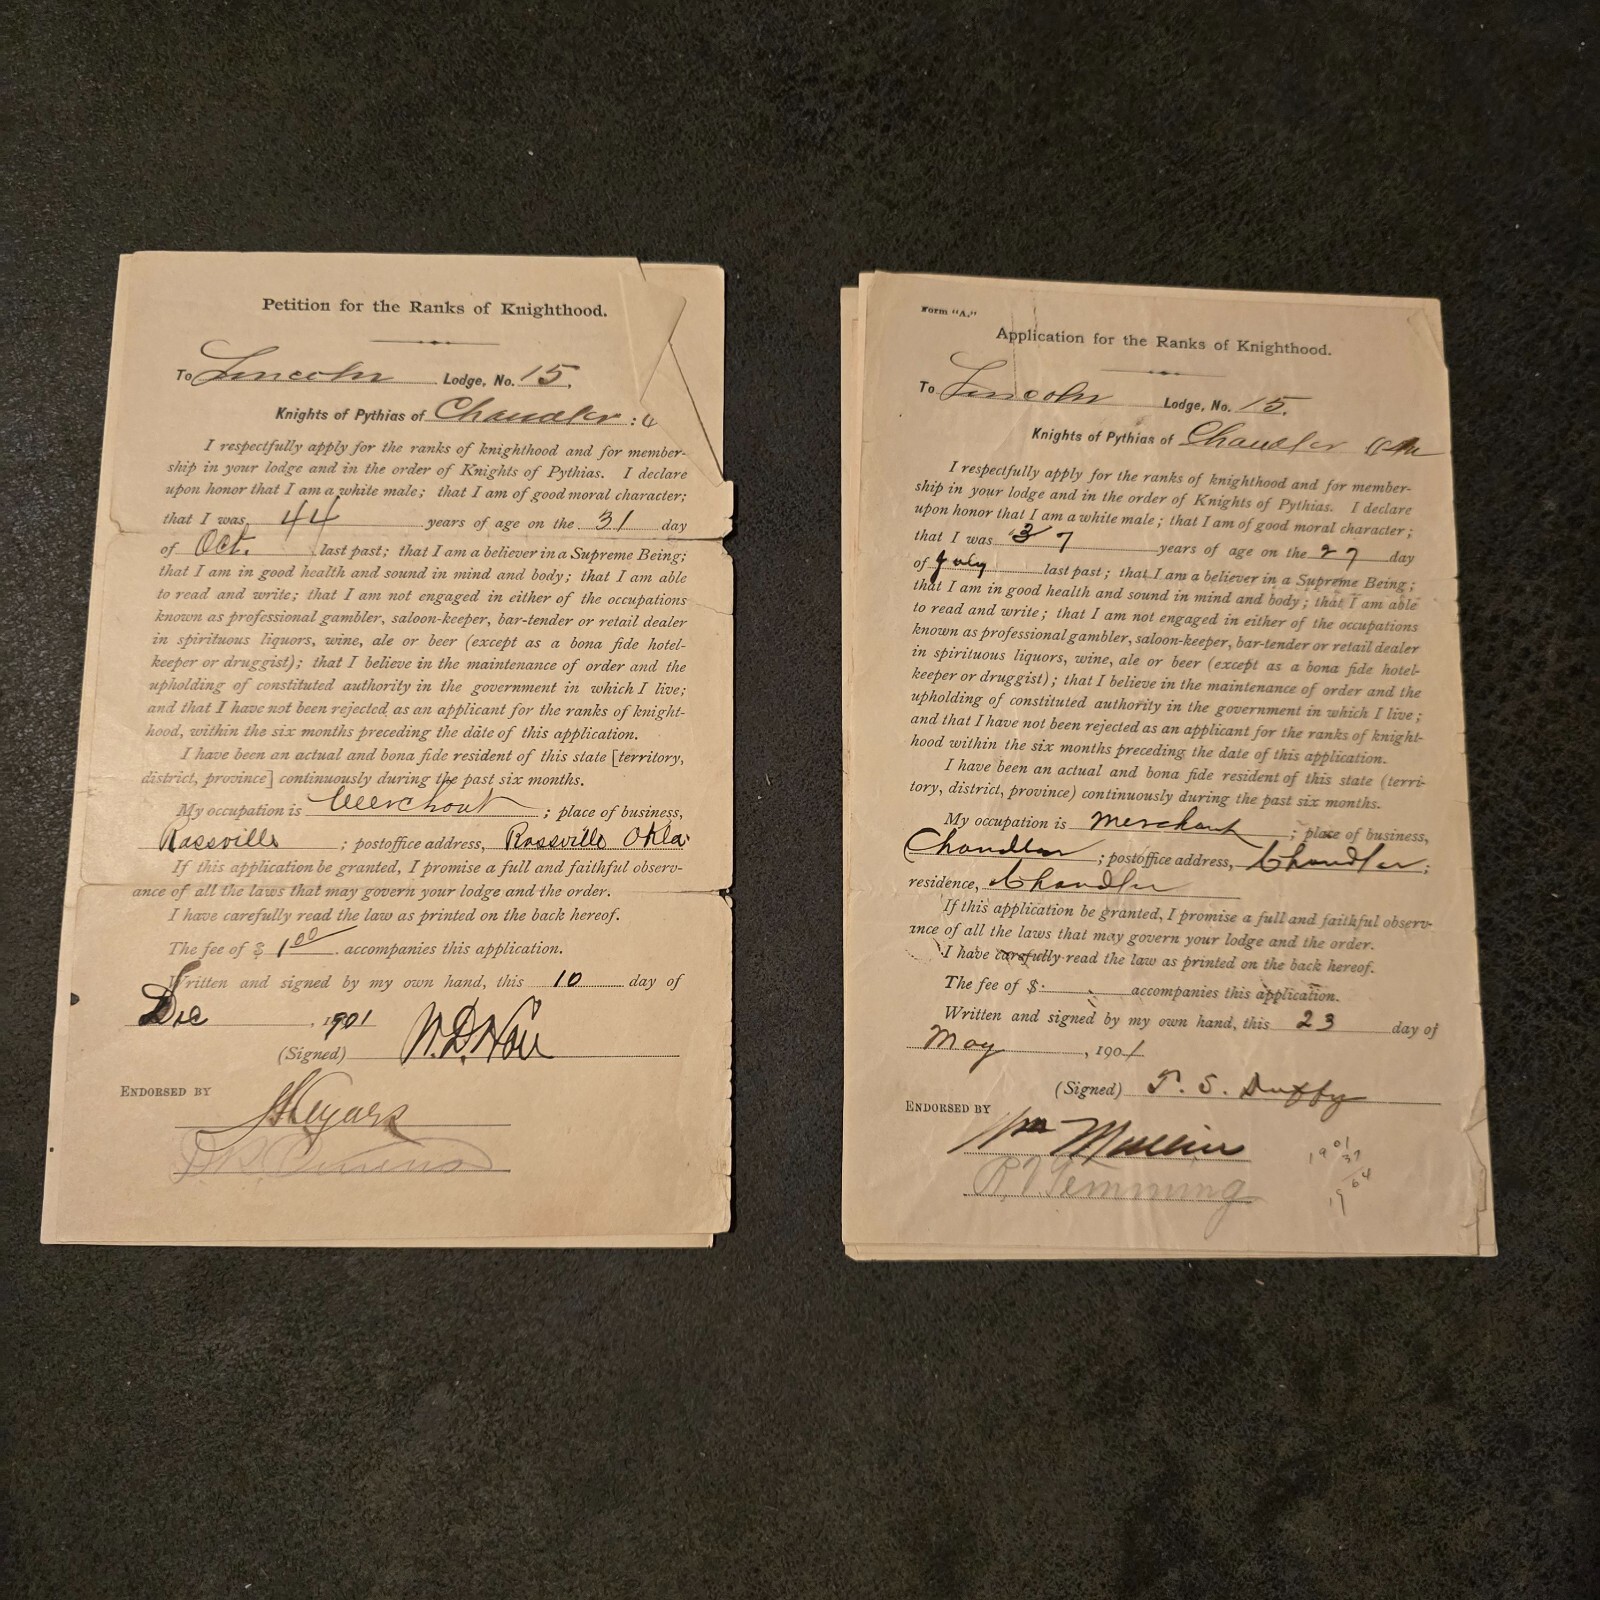 Petition for the Ranks of Knighthood.
To Lincoln Lodge, No. 15.
Knights of Pythias of Chandler :
I respectfully apply for the ranks of knighthood and for member-
ship in your lodge and in the order of Knights of Pythias. I declare
upon honor that I am a white male; that I am of good moral character;
that I was 44 years of age on the 31 day
of Oct. last past; that I am a believer in a Supreme Being;
that I am in good health and sound in mind and body; that I am able
to read and write; that I am not engaged in either of the occupations
known as professional gambler, saloon-keeper, bar-tender or retail dealer
in spirituous liquors, wine, ale or beer (except as a bona fide hotel-
keeper or druggist); that I believe in the maintenance of order and the
upholding of constituted authority in the government in which I live;
and that I have not been rejected as an applicant for the ranks of knight-
hood, within the six months preceding the date of this application.
I have been an actual and bona fide resident of this state [territory,
district, province] continuously during the past six months.
My occupation is Merchant ; place of business,
Rossville ; postoffice address, Rossville Okla
If this application be granted, I promise a full and faithful observ-
ance of all the laws that may govern your lodge and the order.
I have carefully read the law as printed on the back hereof.
The fee of $ 1.00 accompanies this application.
Written and signed by my own hand, this 10 day of
Dec , 1901
(Signed) W. D.
ENDORSED BY
Form "A."
Application for the Ranks of Knighthood.
To Lincoln Lodge, No. 15.
Knights of Pythias of Chandler
I respectfully apply for the ranks of knighthood and for member-
ship in your lodge and in the order of Knights of Pythias. I declare
upon honor that I am a white male; that I am of good moral character;
that I was 37 years of age on the 27 day
of July last past; that I am a believer in a Supreme Being;
that I am in good health and sound in mind and body; that I am able
to read and write; that I am not engaged in either of the occupations
known as professional gambler, saloon-keeper, bar-tender or retail dealer
in spirituous liquors, wine, ale or beer (except as a bona fide hotel-
keeper or druggist); that I believe in the maintenance of order and the
upholding of constituted authority in the government in which I live;
and that I have not been rejected as an applicant for the ranks of knight-
hood within the six months preceding the date of this application.
I have been an actual and bona fide resident of this state (terri-
tory, district, province) continuously during the past six months.
My occupation is Merchant ; place of business,
Chandler ; postoffice address, Chandler ;
residence, Chandler
If this application be granted, I promise a full and faithful observ-
ance of all the laws that may govern your lodge and the order.
I have carefully read the law as printed on the back hereof.
The fee of $ accompanies this application.
Written and signed by my own hand, this 23 day of
May , 1901
(Signed) T. S. Duffy
ENDORSED BY
Wm
1901
37
1964